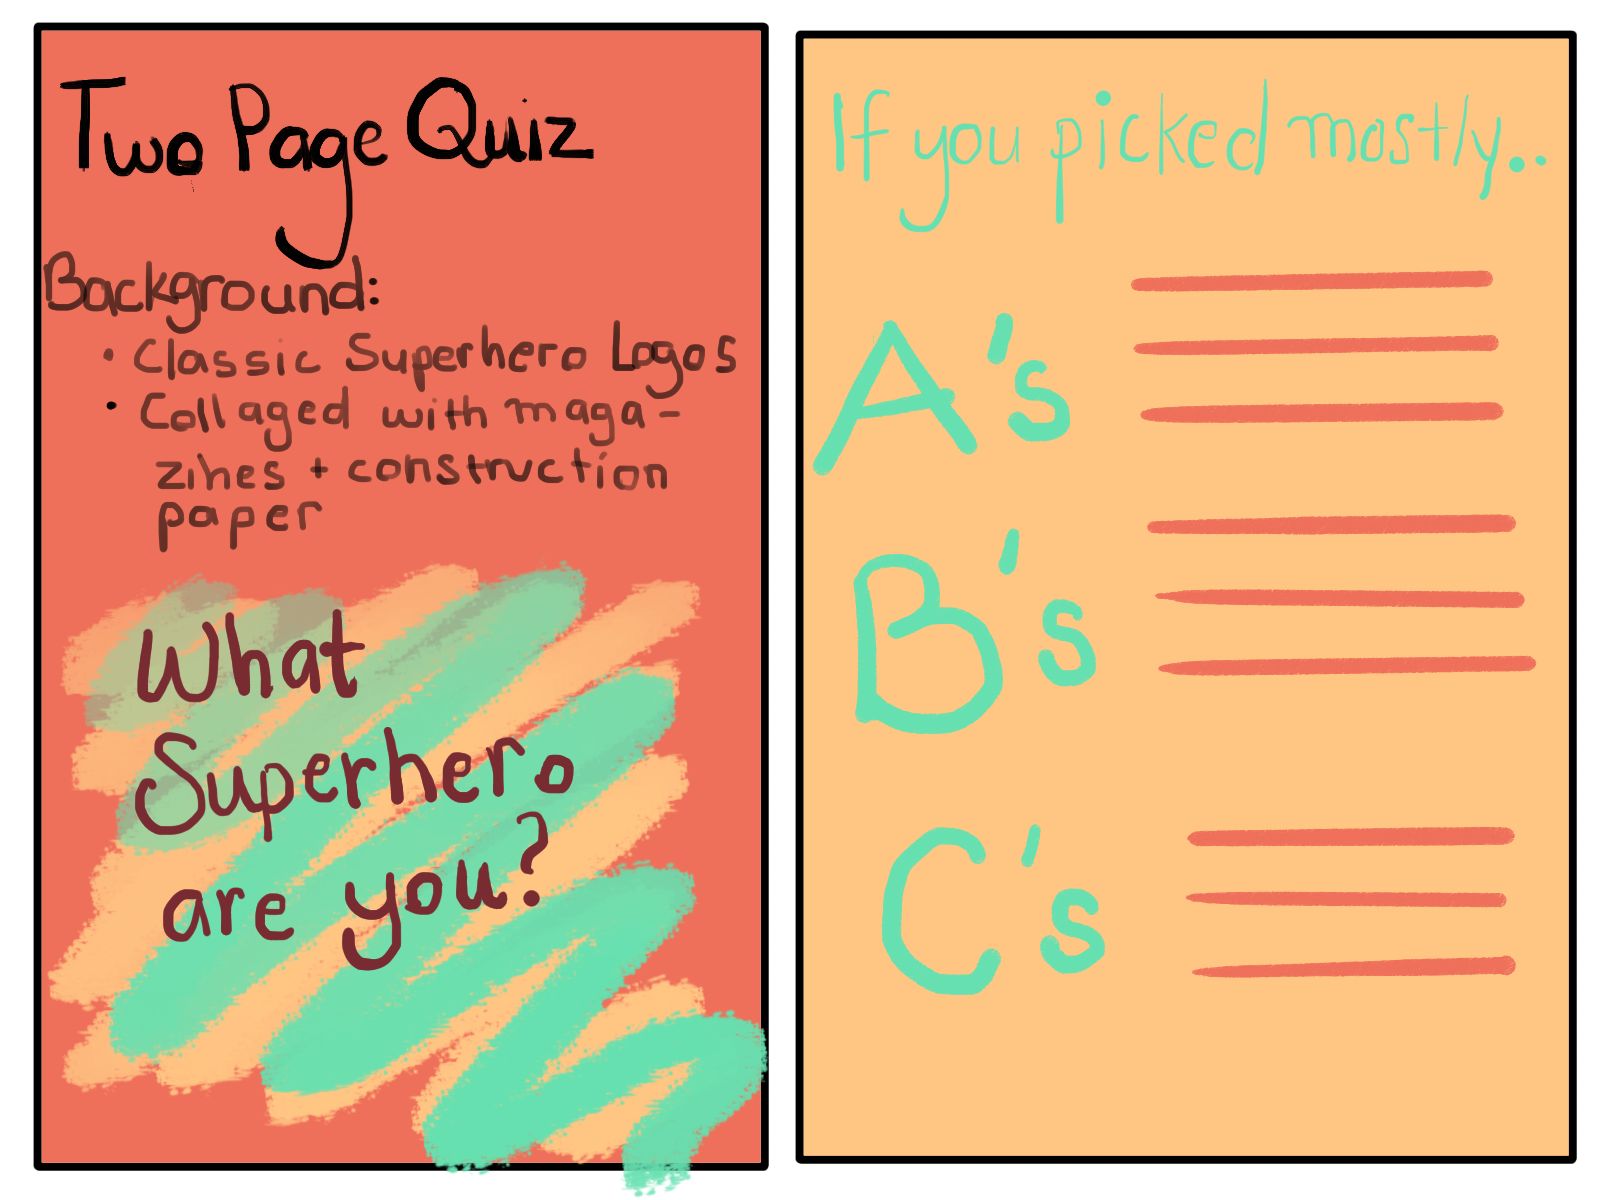 Two Page Quiz
Background:
• Classic Superhero Logos
• Collaged with maga-
zines + construction
paper
What
Superhero
are you?
If you picked mostly...
A's
B's
C's